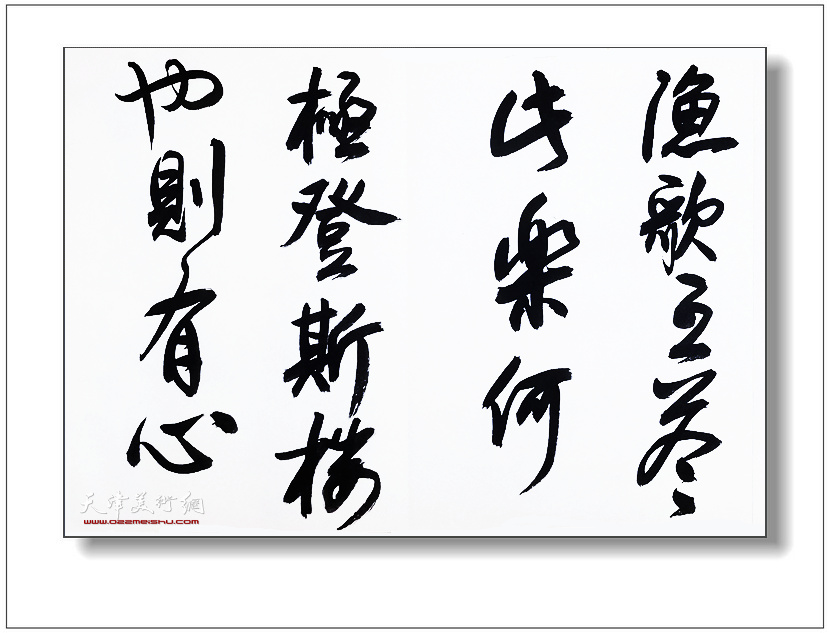 漁歌互答
此樂何
極登斯樓
也則有心
天津美術網
www.022meishu.com